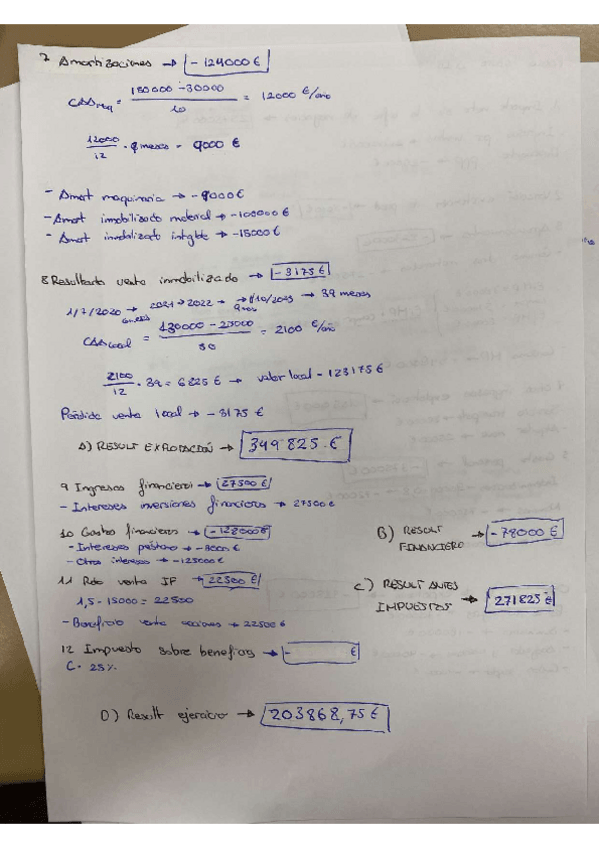 7 Amortizaciones → -124000 €
CAAmaq = 150000 - 30000 / 10 = 12000 €/año
12000 / 12 · 9 meses = 9000 €
- Amort maquinaria → -9000 €
- Amort inmobilizado material → -100000 €
- Amort inmobilizado intgble → -15000 €
8 Resultado venta inmobilizado → -3175 €
1/7/2020 → 2021 → 2022 → 1/10/2023 → 39 meses
6 meses 9 mes
CAAlocal = 130000 - 25000 / 50 = 2100 €/año
2100 / 12 · 39 = 6825 € → valor local = 123175 €
Pérdida venta local → -3175 €
A) RESULT EXPLOTACIÓN → 349825 €
9 Ingresos financieros → 27500 €
- Intereses inversiones financieras → 27500 €
10 Gastos financieros → -128000 €
- Intereses préstamo → -3000 €
- Otros intereses → -125000 €
B) RESULT FINANCIERO → -78000 €
11 Rdo venta IF → 22500 €
1,5 · 15000 = 22500
- Beneficio venta acciones → 22500 €
C) RESULT ANTES IMPUESTOS → 271825 €
12 Impuesto sobre beneficios → - €
C · 25%
D) Result ejercicio → 203868,75 €